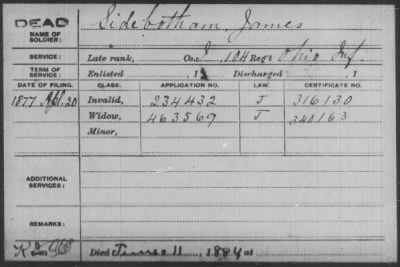 DEAD Sidebotham, James
NAME OF SOLDIER:
SERVICE: Late rank, Co. I, 104 Reg't Ohio Inf.
TERM OF SERVICE: Enlisted , 1 Discharged , 1
DATE OF FILING. CLASS. APPLICATION NO. LAW. CERTIFICATE NO.
1877 Apl. 20 Invalid, 234432 J 316130
Widow, 463569 J 340163
Minor,
ADDITIONAL SERVICES:
REMARKS:
Died 11, 1884 at